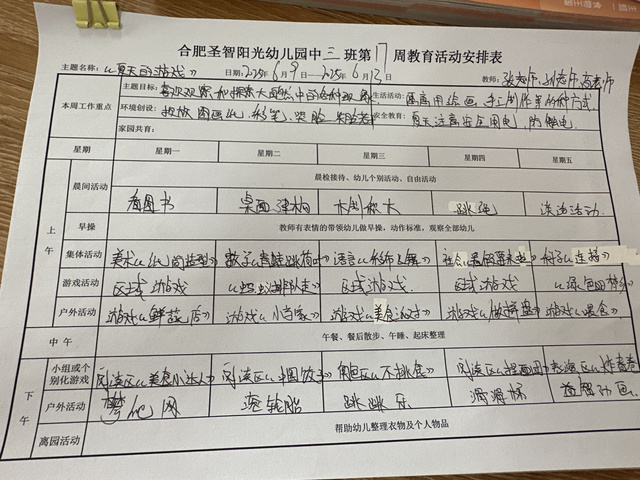 合肥圣智阳光幼儿园中三班第17周教育活动安排表
主题名称：《夏天的游戏》 日期：2025年6月9日—2025年6月13日 教师：张老师、刘老师、高老师
本周工作重点
主题目标：喜欢观察和探索大自然中的各种现象 生活活动：愿意用绘画、手工制作等各种方式
环境创设：投放图画纸、彩笔 安全教育：夏天注意安全用电，防触电
家园共育：
星期 星期一 星期二 星期三 星期四 星期五
上午
晨间活动 晨检接待、幼儿个别活动、自由活动
看图书 桌面建构 木制积木 跳绳 活动
早操 教师有表情的带领幼儿做早操，动作标准，观察全部幼儿
集体活动 美术《纸的造型》 数学《青蛙跳荷叶》 语言 社会 《连线》
游戏活动 区域游戏 《蚂蚁排队走》 区域游戏 区域游戏
户外活动 游戏《鲜蔬店》 游戏《小百家》 游戏《美食派对》 游戏《做拼盘》 游戏《喂食》
中午 午餐、餐后散步、午睡、起床整理
下午
小组或个别化游戏 阅读区《美食小达人》 阅读区 角色区《不挑食》 阅读区 益智区
户外活动 攀爬网 滚轮胎 跳跳乐 滑滑梯 益智
离园活动 帮助幼儿整理衣物及个人物品